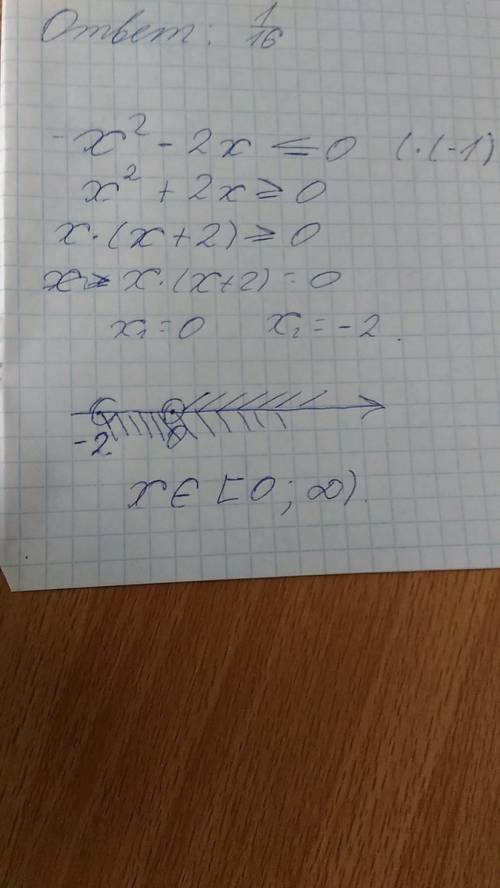 Ответ: 1/16
-x² - 2x ≤ 0 (·(-1)
x² + 2x ≥ 0
x·(x+2) ≥ 0
x·(x+2) = 0
x₁ = 0 x₂ = -2.
-2 0
x ∈ [0; ∞).